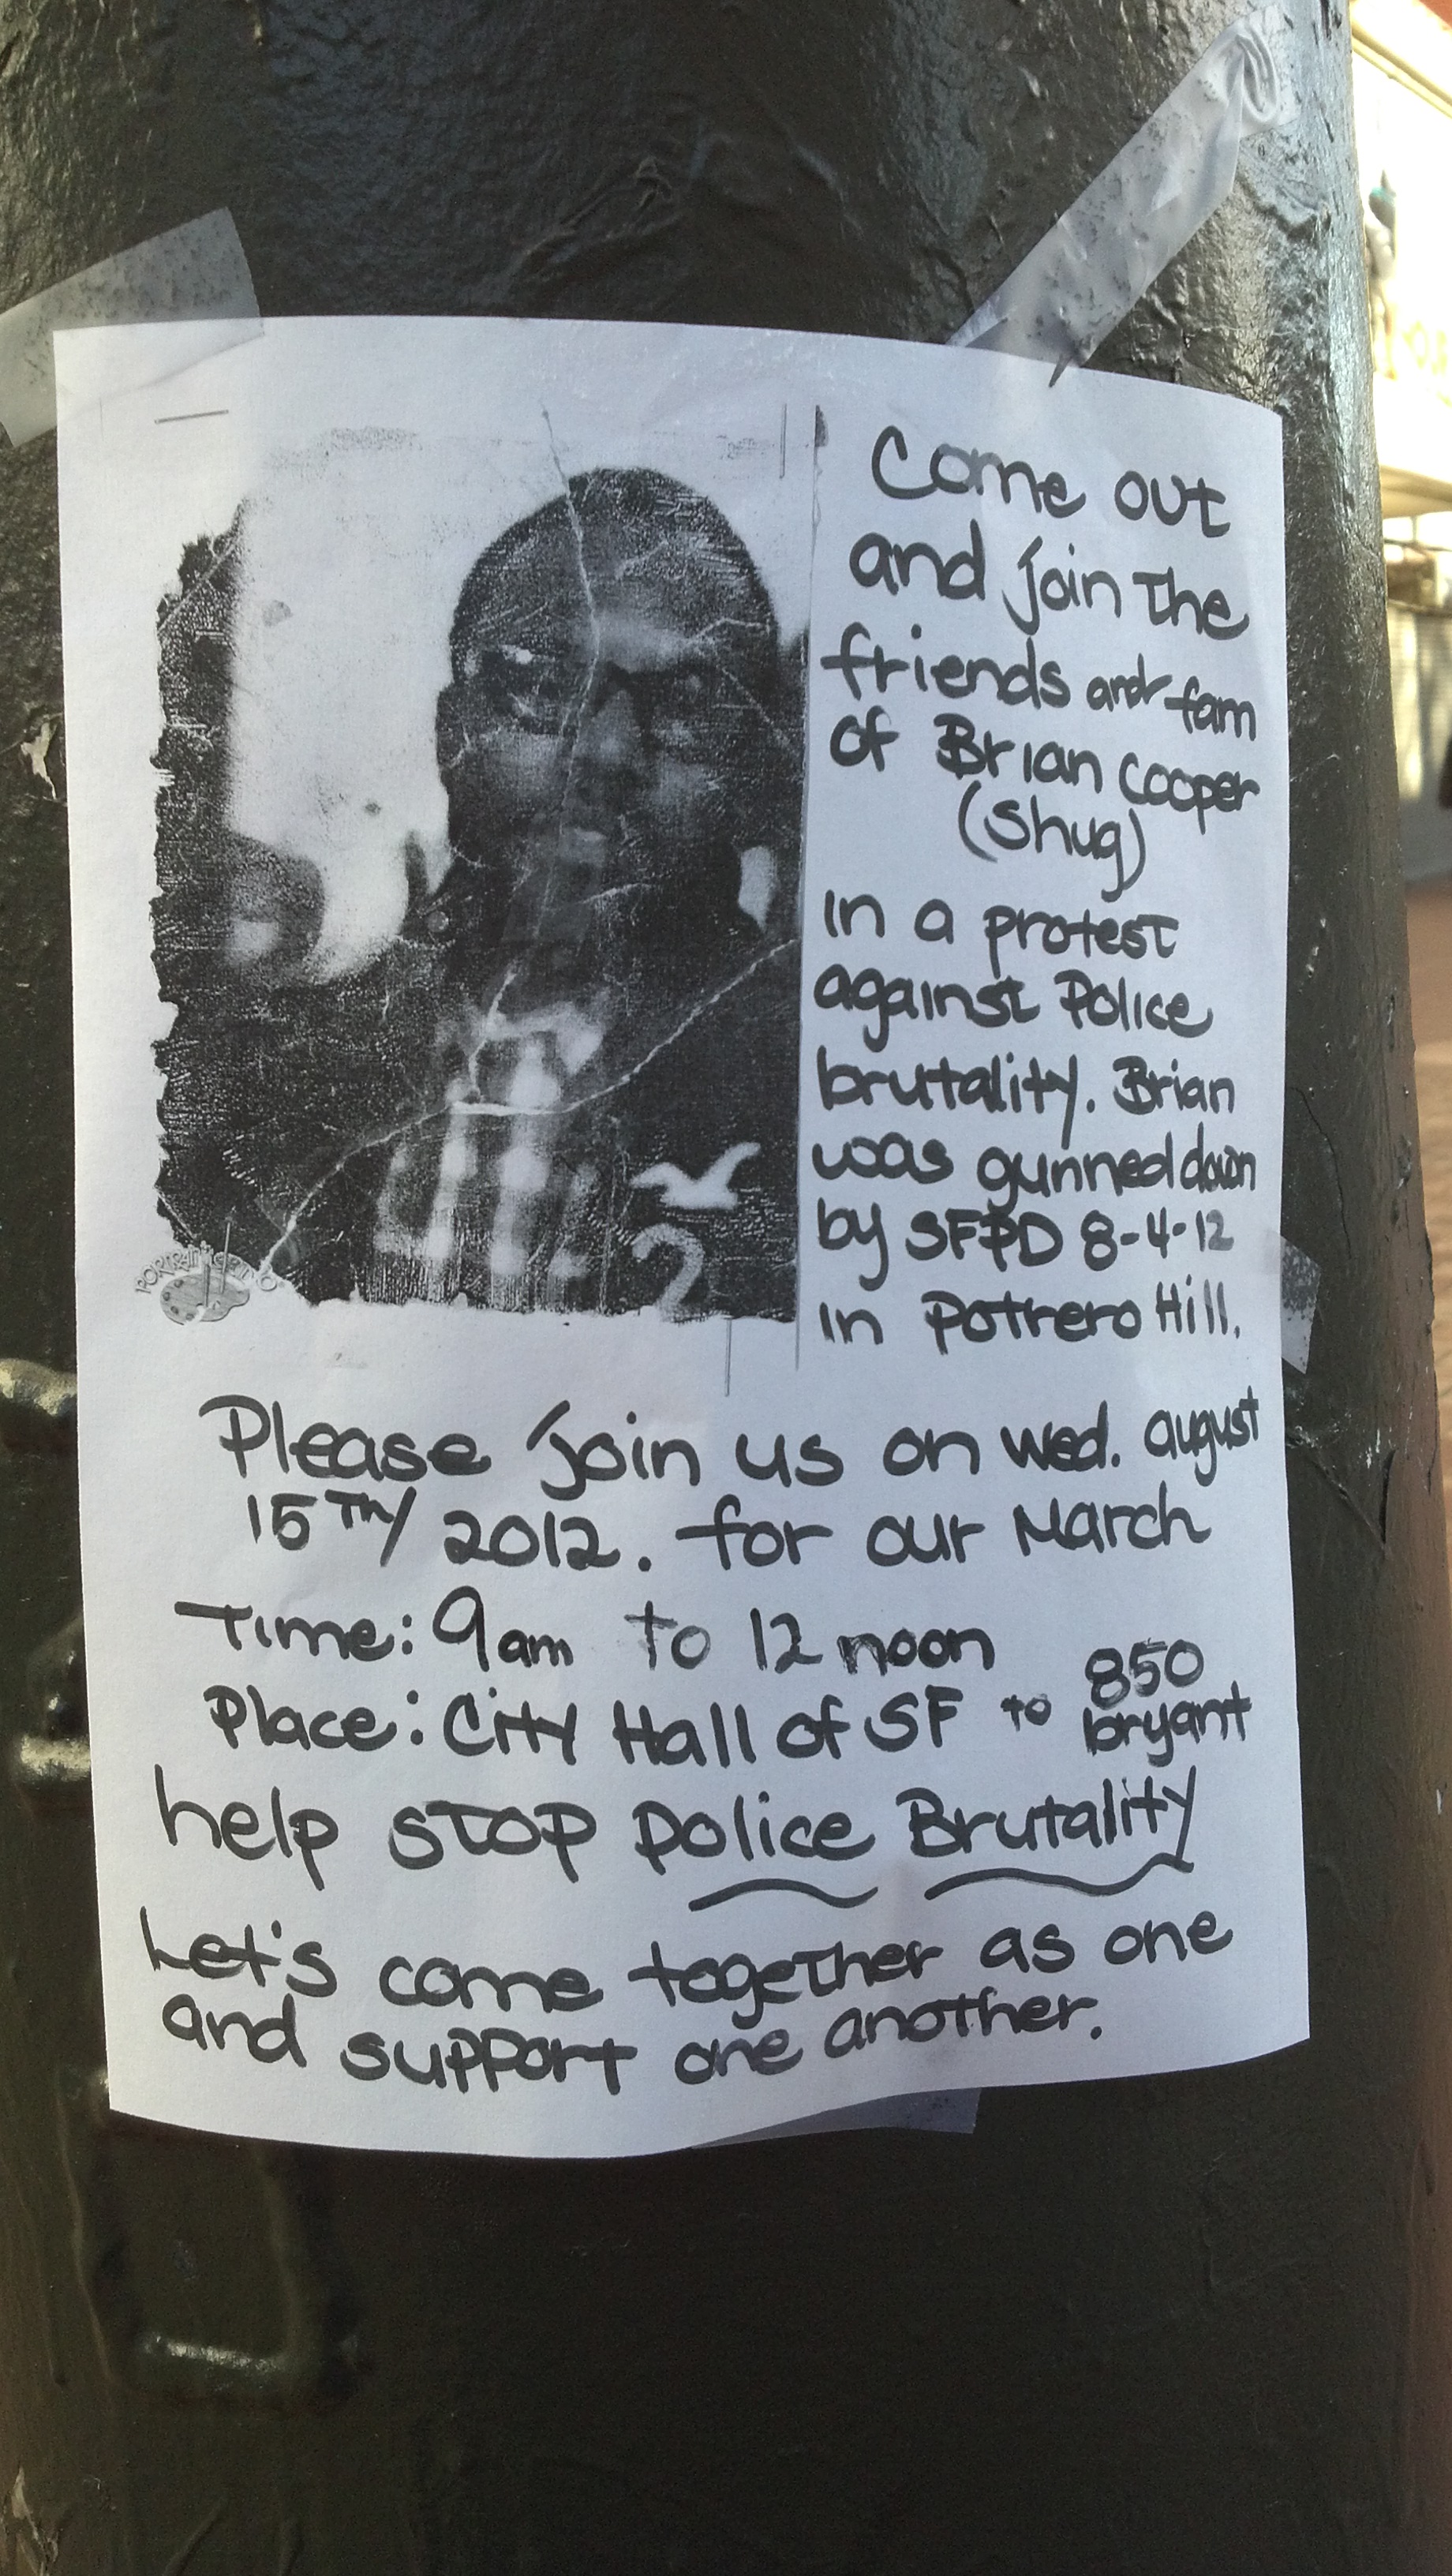 Come out
and join the
friends and fam
of Brian Cooper
(Shug)
in a protest
against Police
brutality. Brian
was gunned down
by SFPD 8-4-12
in Potrero Hill.
2
Please join us on Wed. august
15TH/2012. for our March
Time: 9am to 12 noon
Place: City Hall of SF to 850
bryant
help STOP Police Brutality
Let's come together as one
and support one another.